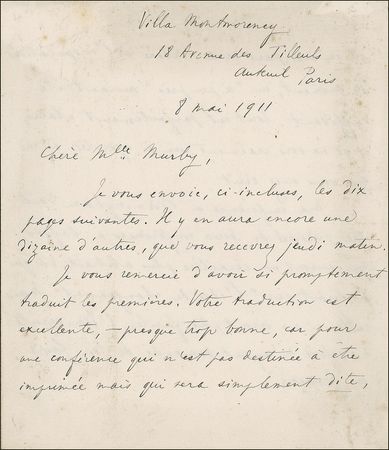 Villa Montmorency
18 Avenue des Tilleuls
Auteuil Paris
8 mai 1911
Chère Mlle Murby,
Je vous envoie, ci-incluses, les dix
pages suivantes. Il y en aura encore une
dizaine d'autres, que vous recevrez jeudi matin.
Je vous remercie d'avoir si promptement
traduit les premières. Votre traduction est
excellente, — presque trop bonne, car pour
une conférence qui n'est pas destinée à être
imprimée mais qui sera simplement dite,